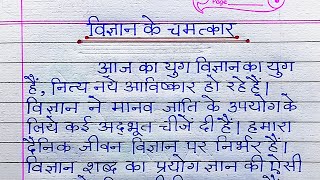 Page
विज्ञान के चमत्कार
आज का युग विज्ञान का युग
है, नित्य नये आविष्कार हो रहे हैं।
विज्ञान ने मानव जाति के उपयोग के
लिये कई अदभूत चीजें दी हैं। हमारा
दैनिक जीवन विज्ञान पर निर्भर है।
विज्ञान शब्द का प्रयोग ज्ञान की ऐसी